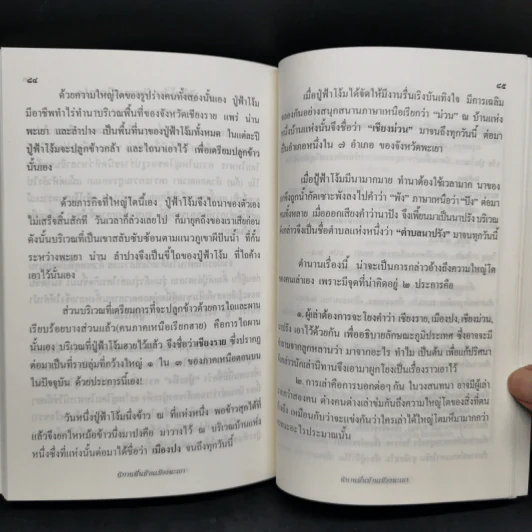 ๘๔
ด้วยความใหญ่โตของรูปร่างคนทั้งสองนั้นเอง ปู่ฟ้าโง้ม
มีอาชีพทำไร่ทำนาบริเวณพื้นที่ของจังหวัดเชียงราย แพร่ น่าน
พะเยา และลำปาง เป็นพื้นที่นาของปู่ฟ้าโง้มทั้งหมด ในแต่ละปี
ปู่ฟ้าโง้มจะปลูกข้าวกล้า และไถนาเอาไว้ เพื่อเตรียมปลูกข้าว
นั้นเอง
ด้วยภารกิจที่ใหญ่โตนี้เอง ปู่ฟ้าโง้มซึ่งไถนาของตัวเอง
ไม่เสร็จสิ้นสักที วันเวลาก็ล่วงเลยไป ก็มายุคถึงของเราเสียก่อน
ดังนั้นบริเวณที่เป็นเขาสลับซับซ้อนตามแนวภูเขาผีปันน้ำ ที่กั้น
ระหว่างพะเยา น่าน ลำปางจึงเป็นขี้ไถของปู่ฟ้าโง้ม ที่ไถค้าง
เอาไว้นั้นเอง
ส่วนบริเวณที่เตรียมการที่จะปลูกข้าวด้วยการไถและผาน
เรียบร้อยบางส่วนแล้ว (คนภาคเหนือเรียกฮาย) คือการไถผาน
นั้นเอง บริเวณที่ปู่ฟ้าโง้มฮายไว้แล้ว จึงชื่อว่าเชียงราย ซึ่งปรากฏ
ต่อมาเป็นที่ราบลุ่มที่กว้างใหญ่ ๑ ใน ๓ ของภาคเหนือตอนบน
ในปัจจุบัน ด้วยประการนี้เอง
วันหนึ่งปู่ฟ้าโง้มนึ่งข้าว ณ ที่แห่งหนึ่ง พอข้าวสุกได้ที่
แล้วจึงยกไหหม้อข้าวนึ่งมาปงคือ มาวางไว้ ณ บริเวณบ้านแห่ง
หนึ่งซึ่งที่แห่งนั้นต่อมาได้ชื่อว่า เมืองปง จนถึงทุกวันนี้
นิทานพื้นบ้านเมืองพะเยา
๘๕
เมื่อปู่ฟ้าโง้มได้จัดให้มีงานรื่นเริงบันเทิงใจ มีการเฉลิม
ฉลองกันอย่างสนุกสนานภาษาเหนือเรียกว่า "ม่วน" ณ บ้านแห่ง
หนึ่งบ้านแห่งนั้นจึงชื่อว่า "เชียงม่วน" มาจนถึงทุกวันนี้ ต่อมา
เป็นอำเภอหนึ่งใน ๗ อำเภอ ของจังหวัดพะเยา
เมื่อปู่ฟ้าโง้มมีนามากมาย ทำนาต้องใช้เวลามาก นาของ
ถูกน้ำกัดเซาะพังลงไปคำว่า "พัง" ภาษาเหนือว่า "ปัง" ต่อมา
ทั้งหลาย เมื่อออกเสียงคำว่านาปัง จึงเพี้ยนมาเป็นนาปรัง บริเวณ
กล่าวจึงเป็นชื่อตำบลแห่งหนึ่งว่า "ตำบลนาปรัง" มาจนทุกวันนี้
ตำนานเรื่องนี้ น่าจะเป็นการกล่าวอ้างถึงความใหญ่โต
ของคนเล่าเอง เพราะมีจุดที่น่าคิดอยู่ ๒ ประการคือ
๑. ผู้เล่าต้องการจะโยงคำว่า เชียงราย,เมืองปง, เชียงม่วน,
นาปรัง เอาไว้ด้วยกัน เพื่ออธิบายลักษณะภูมิประเทศ ซึ่งอาจจะมี
จากลูกหลานว่า มาจากอะไร ทำไม เป็นต้น เพื่อแก้ปริศนา
กล่าวนักเล่าเหล่านี้ มีทางจึงเอามาผูกโยงเป็นเรื่องราวเอาไว้
๒. การเล่าคือการบอกต่อๆ กัน ในวงสนทนา อาจมีผู้เล่า
กว่าสองคน ต่างคนต่างเล่าข่มกันถึงความใหญ่โตของสิ่งที่ตน
เหมือนกับว่าจะแข่งกันว่าใครเล่าได้ใหญ่โตมหึมามากกว่า
อะไรประมาณนั้น
นิทานพื้นบ้านเมืองพะเยา